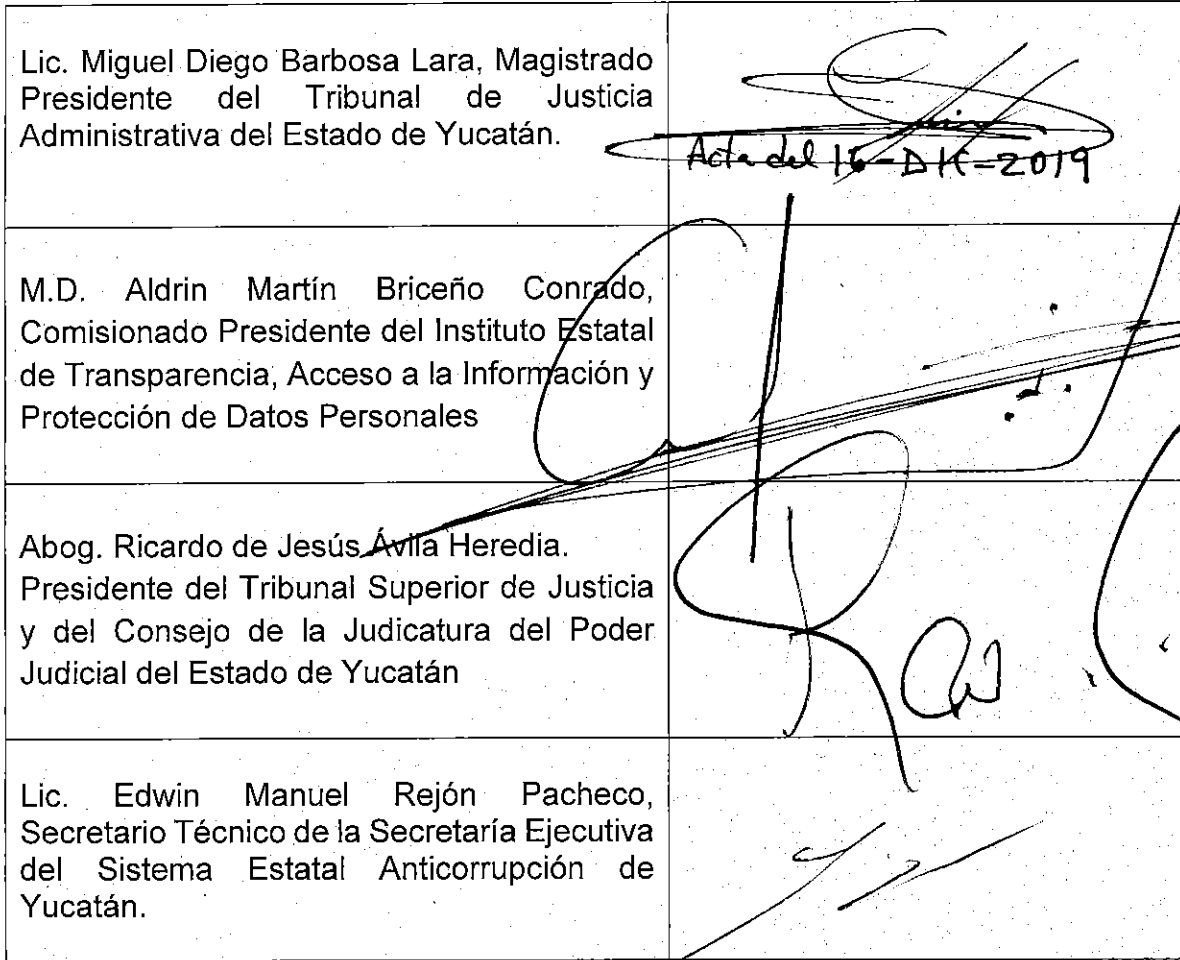 Lic. Miguel Diego Barbosa Lara, Magistrado
Presidente del Tribunal de Justicia
Administrativa del Estado de Yucatán.
Acta del 16-DIC-2019
M.D. Aldrin Martín Briceño Conrado,
Comisionado Presidente del Instituto Estatal
de Transparencia, Acceso a la Información y
Protección de Datos Personales
Abog. Ricardo de Jesús Ávila Heredia.
Presidente del Tribunal Superior de Justicia
y del Consejo de la Judicatura del Poder
Judicial del Estado de Yucatán
Lic. Edwin Manuel Rejón Pacheco,
Secretario Técnico de la Secretaría Ejecutiva
del Sistema Estatal Anticorrupción de
Yucatán.